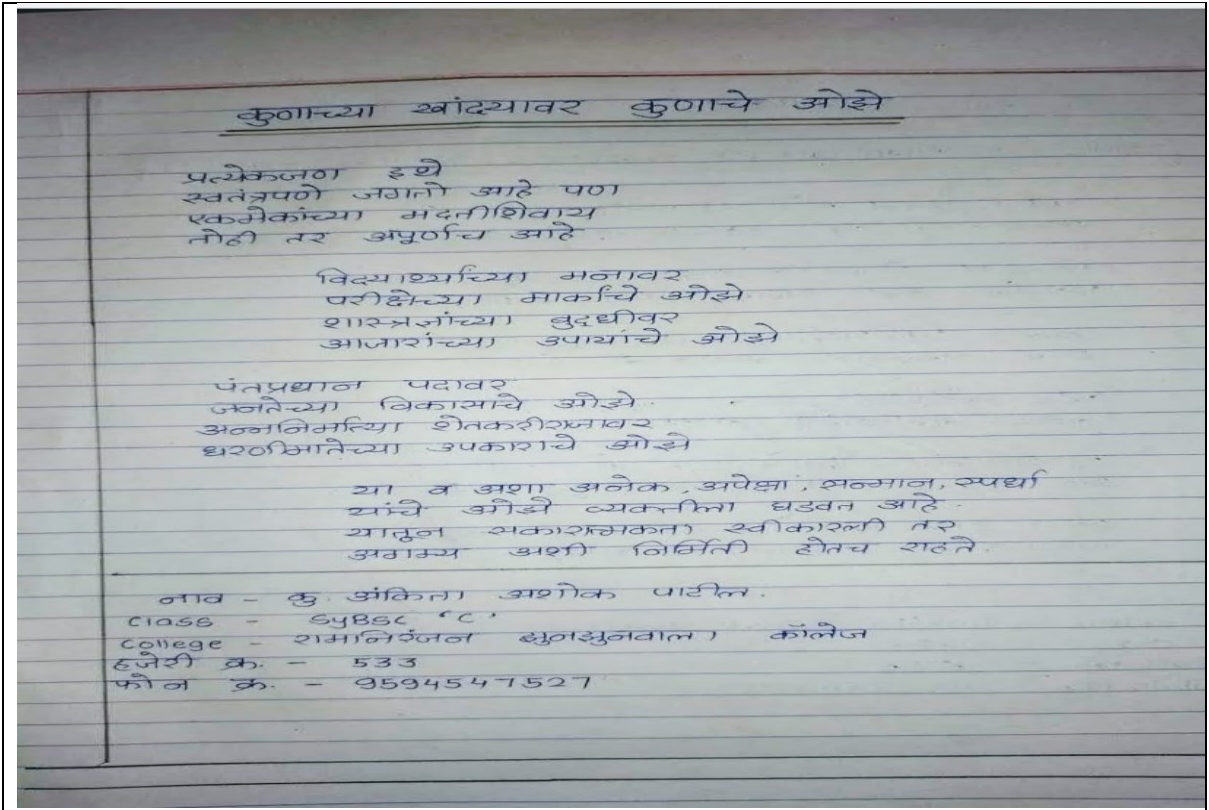 कुणाच्या खांदयावर कुणाचे ओझे
प्रत्येकजण इथे
स्वतंत्रपणे जगतो आहे पण
एकमेकांच्या मदतीशिवाय
तोही तर अपूर्णच आहे.
विदयार्थ्यांच्या मनावर
परीक्षेच्या मार्कांचे ओझे
शास्त्रज्ञांच्या बुद्धीवर
आजारांच्या उपायांचे ओझे
पंतप्रधान पदावर
जनतेच्या विकासाचे ओझे.
अन्ननिर्मात्या शेतकरीराजावर
धरणीमातेच्या उपकाराचे ओझे
या व अशा अनेक, अपेक्षा, सन्मान, स्पर्धा
यांचे ओझे व्यक्तीला घडवत आहे.
यातून सकारात्मकता स्वीकारली तर
अगम्य अशी निर्मिती होतच राहते.
नाव - कु. अंकिता अशोक पाटील.
class - SyBSC 'C'
college - रामनिरंजन झुनझुनवाला कॉलेज
हजेरी क्र. - 533
फोन क्र. - 9594547527